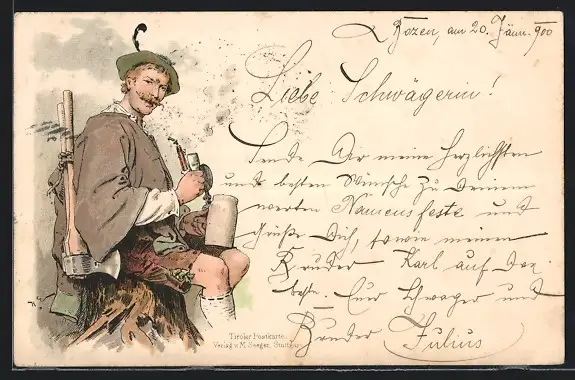 Bozen, am 20. Jänn. 900
Liebe Schwägerin!
Sende Dir meine herzlichsten
und besten Wünsche zu Deinem
werten Namensfeste und
grüße Dich, sowie meinen
Bruder Karl auf das
beste. Euer Schwager und
Bruder Julius
Tiroler Postkarte.
Verlag v. M. Seeger, Stuttgart